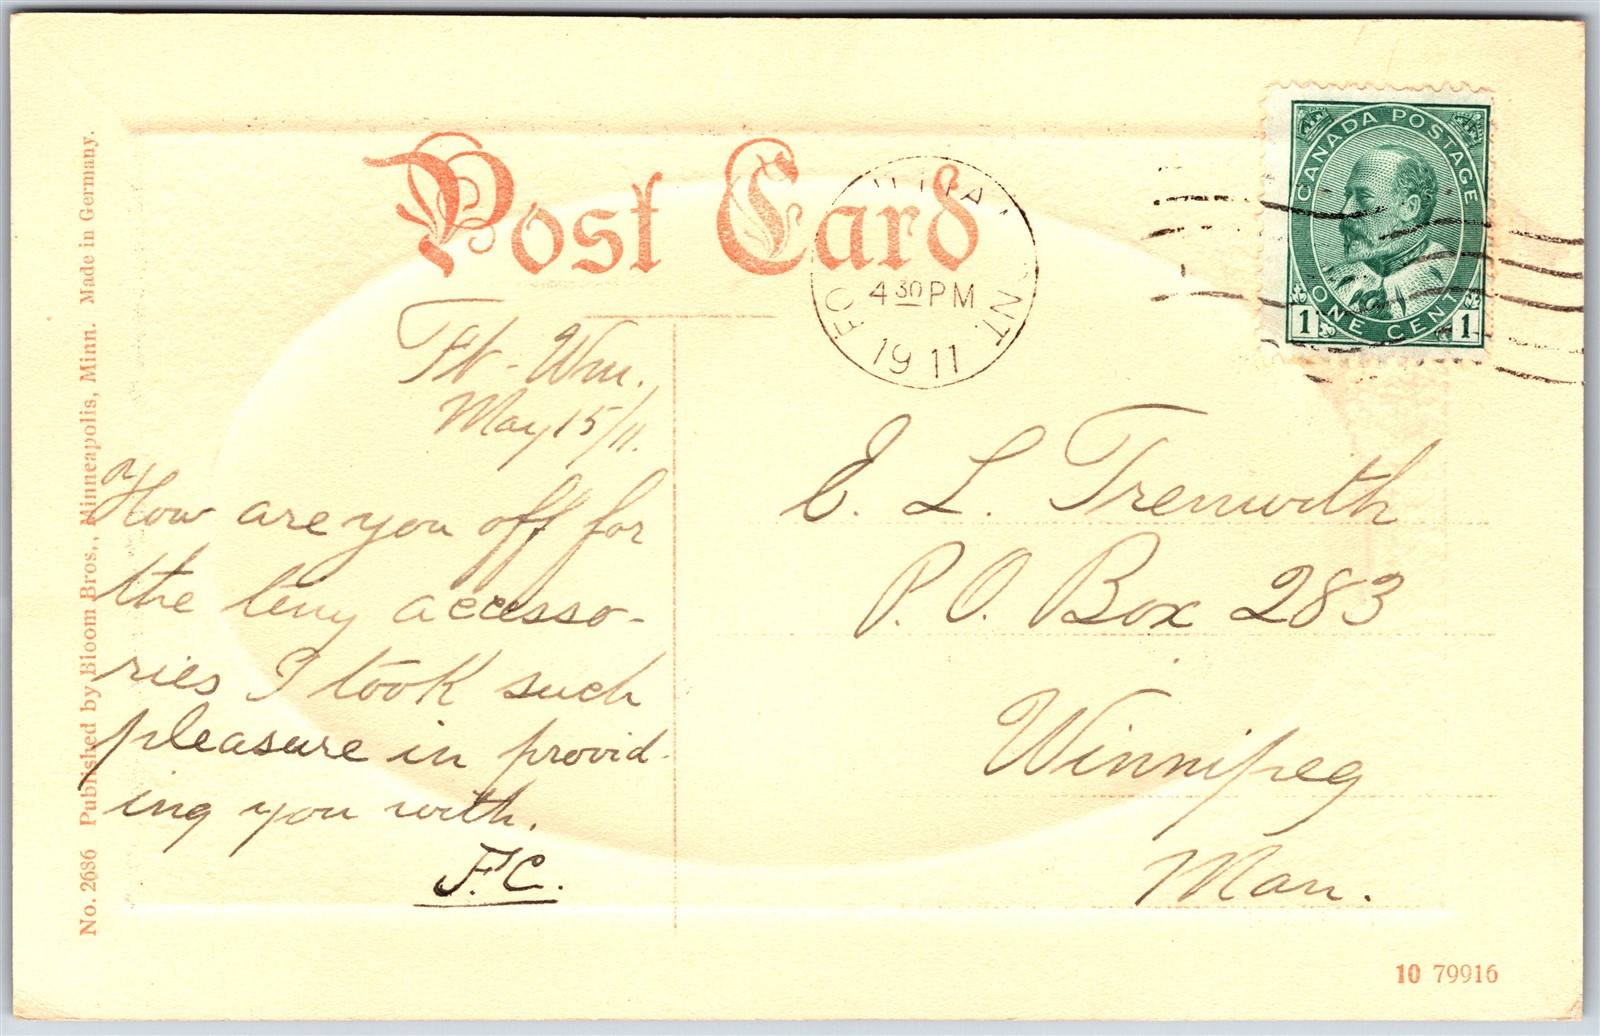 Post Card
CANADA POSTAGE
ONE CENT
1 1
4 30 PM
1911
ONT.
Ft-Wm.,
May 15/11.
How are you off for
the accesso-
ries I took such
pleasure in provid-
ing you with.
F.C.
E. L. Trenwith
P.O. Box 283
Winnipeg
Man.
No. 2686 Published by Bloom Bros., Minneapolis, Minn. Made in Germany.
10 79916